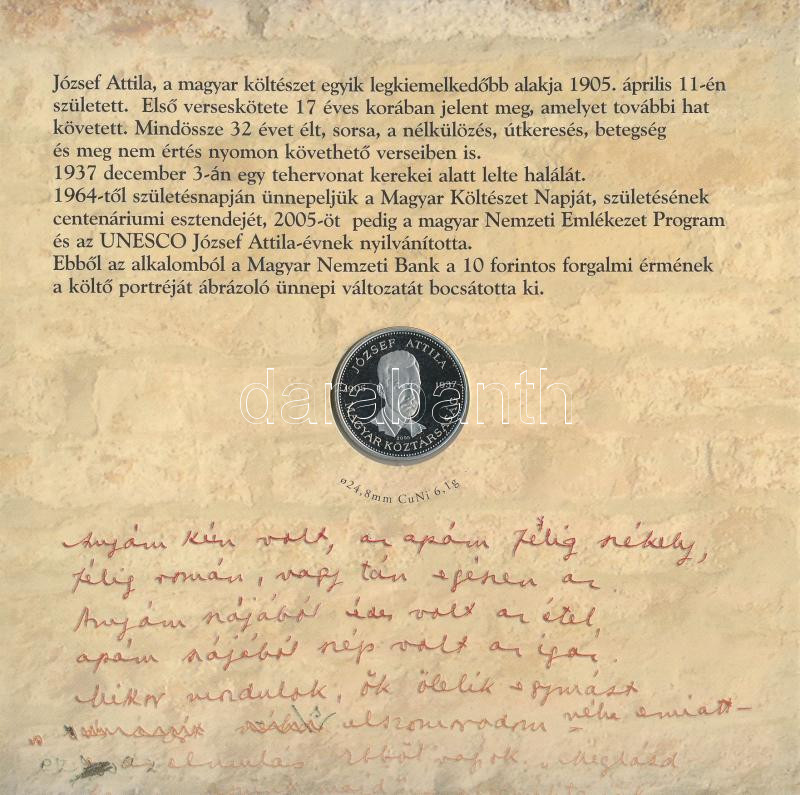 József Attila, a magyar költészet egyik legkiemelkedőbb alakja 1905. április 11-én
született. Első verseskötete 17 éves korában jelent meg, amelyet további hat
követett. Mindössze 32 évet élt, sorsa, a nélkülözés, útkeresés, betegség
és meg nem értés nyomon követhető verseiben is.
1937 december 3-án egy tehervonat kerekei alatt lelte halálát.
1964-től születésnapján ünnepeljük a Magyar Költészet Napját, születésének
centenáriumi esztendejét, 2005-öt pedig a magyar Nemzeti Emlékezet Program
és az UNESCO József Attila-évnek nyilvánította.
Ebből az alkalomból a Magyar Nemzeti Bank a 10 forintos forgalmi érmének
a költő portréját ábrázoló ünnepi változatát bocsátotta ki.
JÓZSEF ATTILA
1905 1937
darabanth
2005
MAGYAR KÖZTÁRSASÁG
ø24,8mm CuNi 6,1g
Anyám kún volt, az apám félig székely,
félig román, vagy tán egészen az.
Anyám szájából édes volt az étel
apám szájából szép volt az igaz.
Mikor mozdulok, ők ölelik egymást
elszomorodom néha emiatt –
ez az elmulás Ebből vagyok „Meglásd